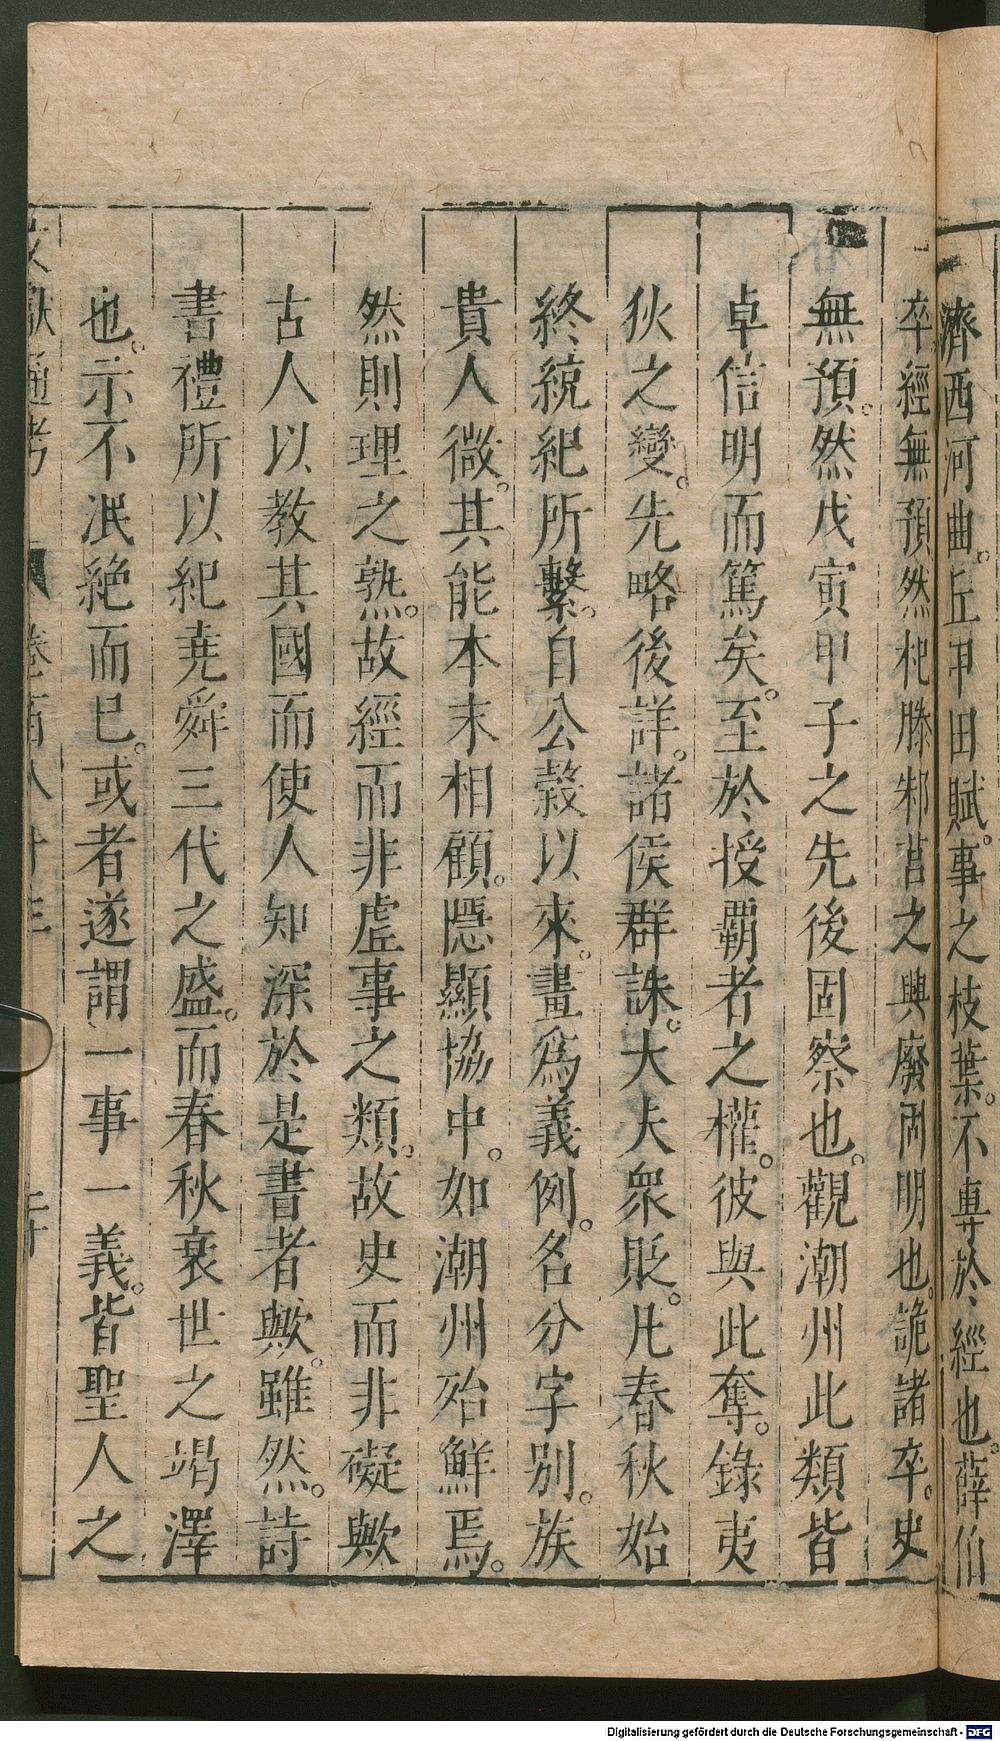 濟西河曲。丘甲田賦。事之枝葉。不專於經也。薛伯
卒經無預然杞滕邾莒之興廢兩明也。詭諸卒。史
無預。然戊寅甲子之先後固察也。觀潮州此類皆
卓信明而篤矣。至於授霸者之權。彼與此奪。錄夷
狄之變。先略後詳。諸侯群誅。大夫衆貶。凡春秋始
終統紀所繫。自公穀以來。畫爲義例。名分字別。族
貴人微。其能本末相顧。隱顯協中。如潮州殆鮮焉。
然則理之熟。故經而非虛事之類。故史而非礙歟
古人以教其國而使人知深於是書者歟。雖然。詩
書禮所以紀堯舜三代之盛。而春秋衰世之竭澤
也。示不泯絶而已。或者遂謂一事一義。皆聖人之
文獻通考 卷百八十三
Digitalisierung gefördert durch die Deutsche Forschungsgemeinschaft - DFG